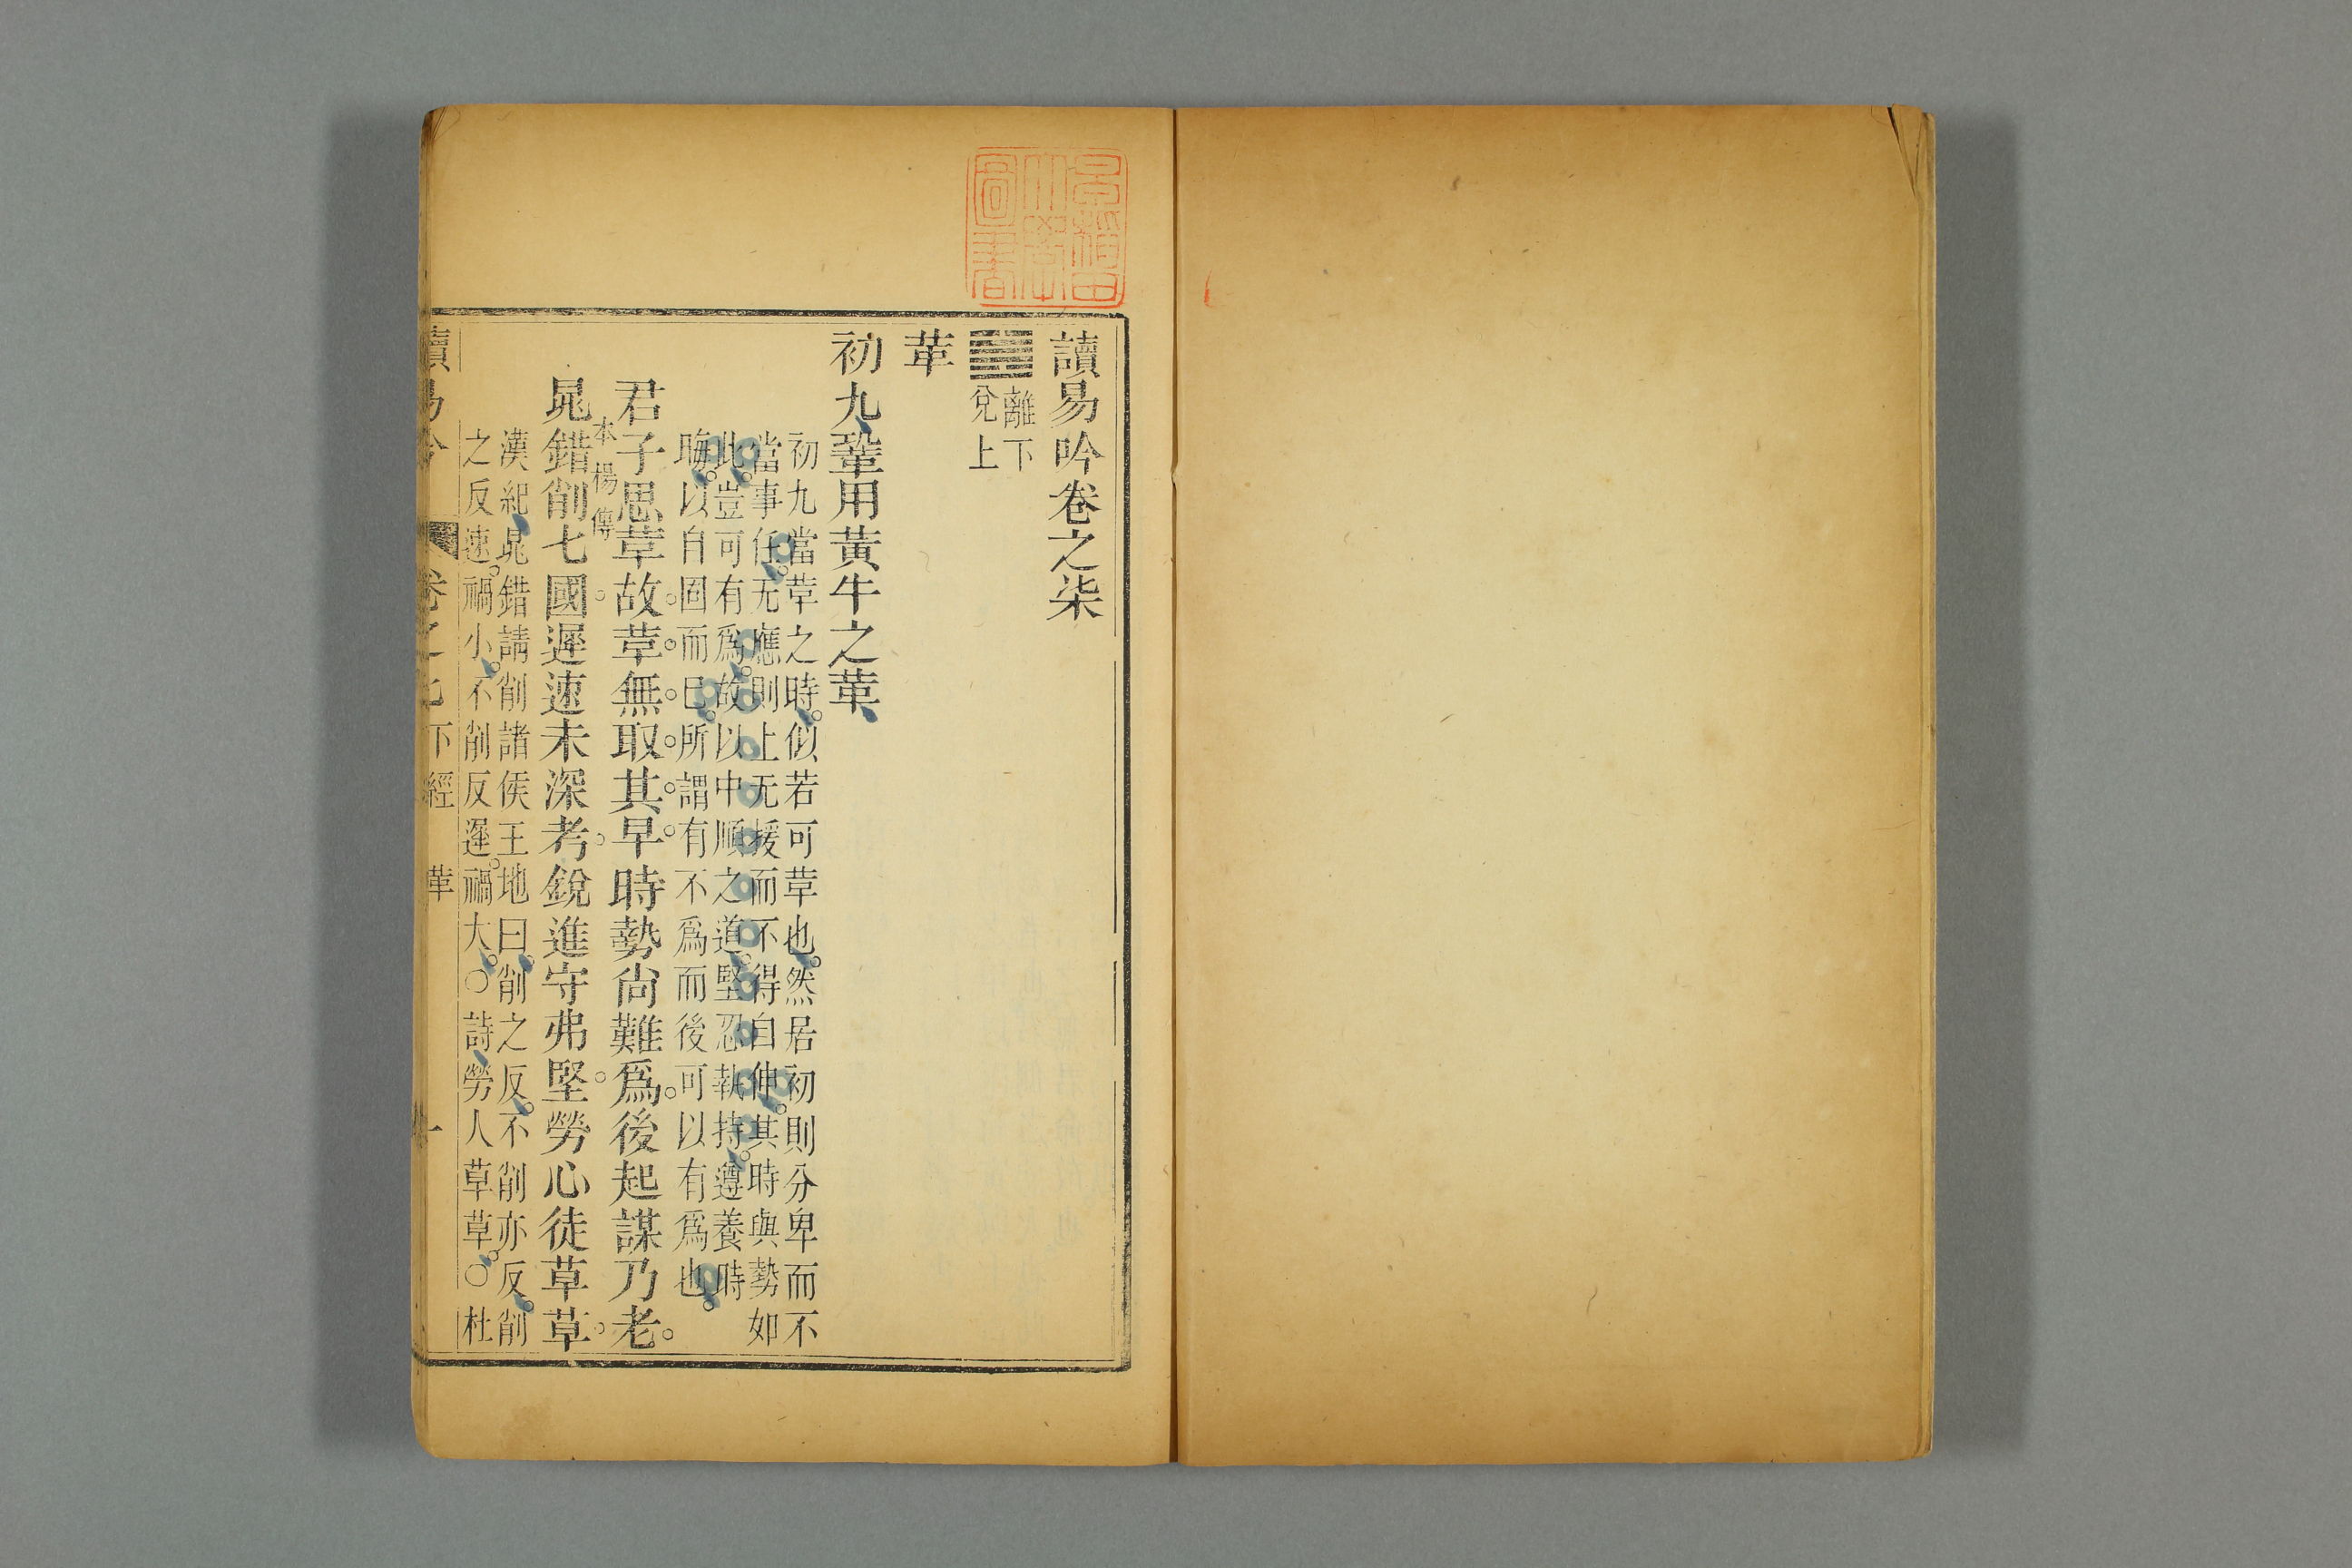 早稲田大學圖書
讀易吟卷之柒
䷰離下
兌上
革
初九鞏用黃牛之革
初九當革之時似若可革也然居初則分卑而不
當事任无應則上无援而不得自伸其時與勢如
此豈可有爲故以中順之道堅忍執持遵養時
晦以自固而已所謂有不爲而後可以有爲也
君子思革故革無取其早時勢尙難爲後起謀乃老
本楊傳
晁錯削七國遲速未深考銳進守弗堅勞心徒草草
漢紀晁錯請削諸侯王地曰削之反不削亦反削
之反速禍小不削反遲禍大○詩勞人草草○杜
讀易吟 卷之七 下經 革 一